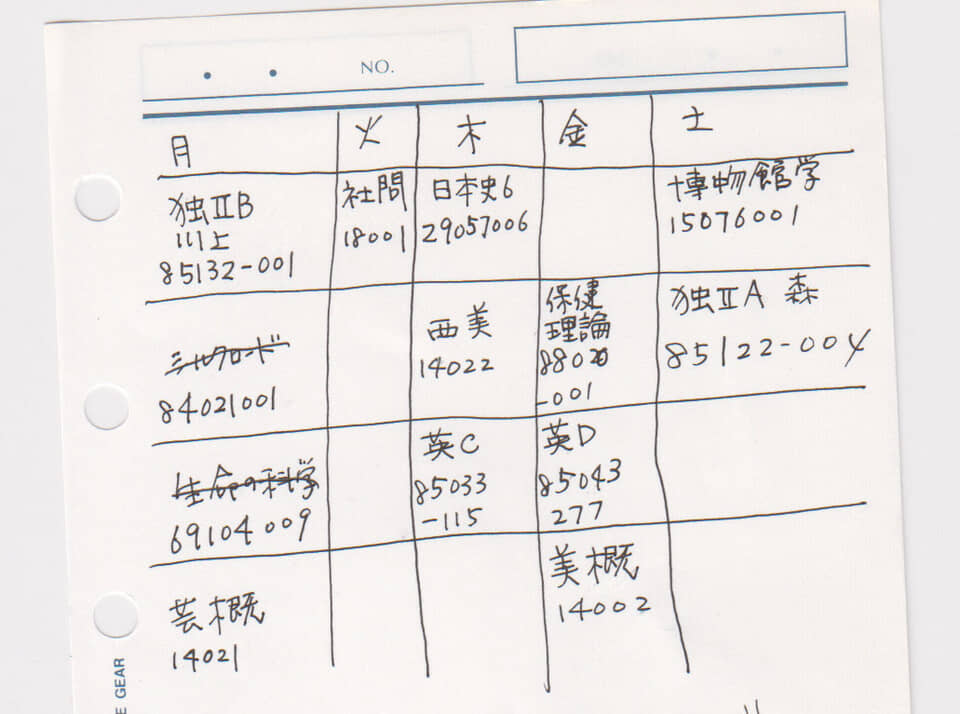 NO.
月 火 木 金 土
独ⅡB
川上
85132-001
社問
18001
日本史6
29057006
博物館学
15076001
シルクロード
84021001
西美
14022
保健
理論
8802
-001
独ⅡA 森
85122-004
生命の科学
69104009
英C
85033
-115
英D
85043
277
芸概
14021
美概
14002
E GEAR